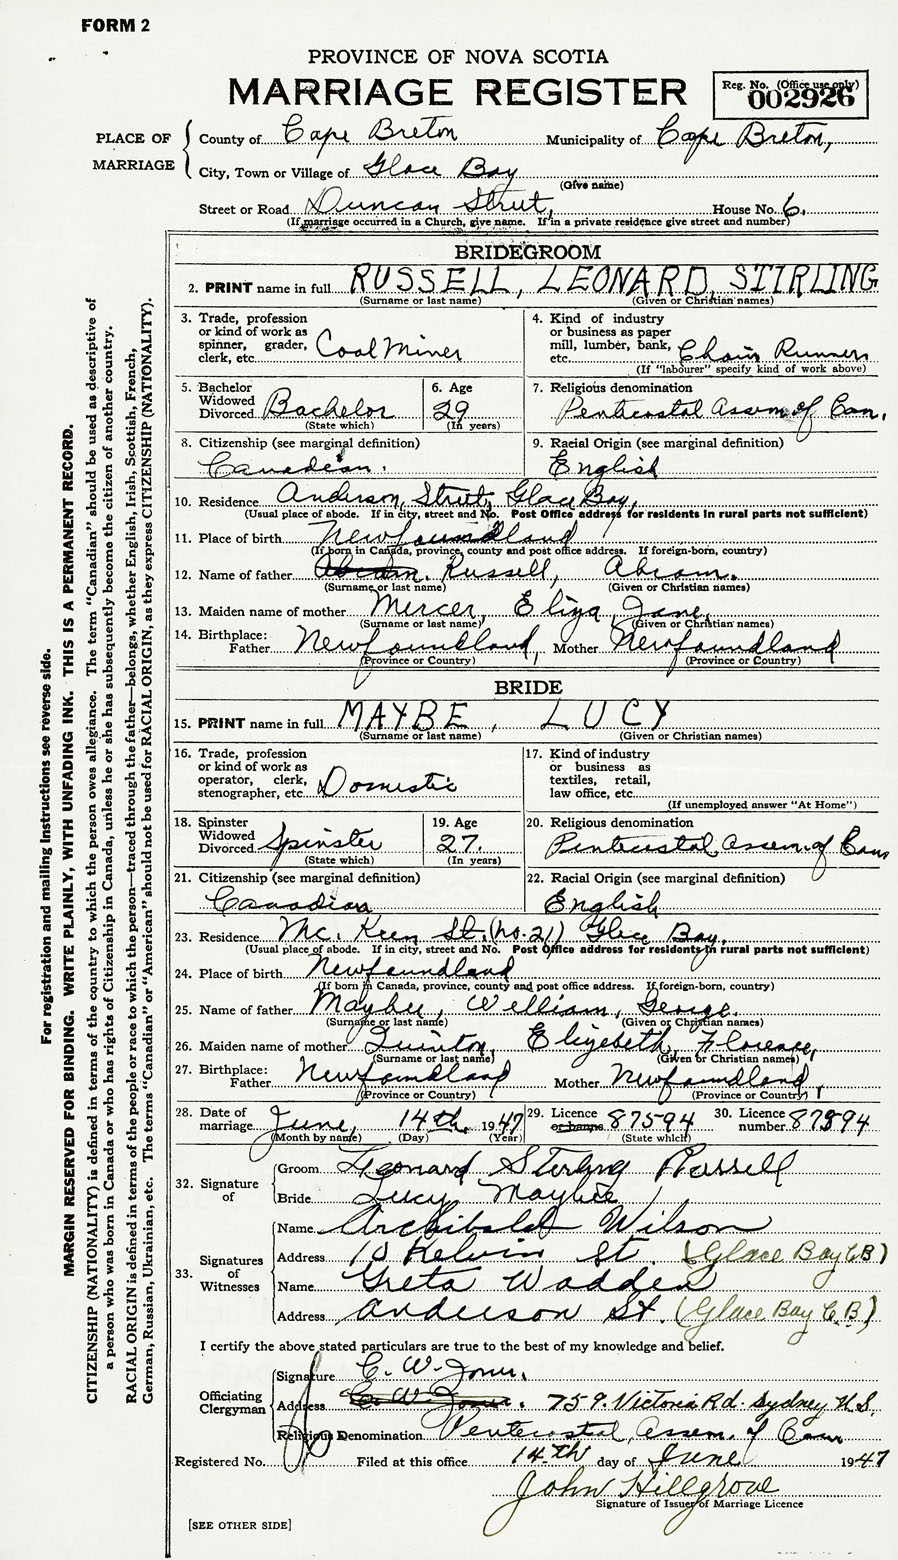 FORM 2
PROVINCE OF NOVA SCOTIA
MARRIAGE REGISTER
Reg. No. (Office use only)
002926
PLACE OF MARRIAGE
County of Cape Breton Municipality of Cape Breton,
City, Town or Village of Glace Bay
(Give name)
Street or Road Duncan Street, House No. 6.
(If marriage occurred in a Church, give name. If in a private residence give street and number)
BRIDEGROOM
2. PRINT name in full RUSSELL, LEONARD, STIRLING
(Surname or last name) (Given or Christian names)
3. Trade, profession
or kind of work as
spinner, grader,
clerk, etc. Coal Miner
4. Kind of industry
or business as paper
mill, lumber, bank,
etc. Chain Runner
(If "labourer" specify kind of work above)
5. Bachelor
Widowed
Divorced Bachelor
(State which)
6. Age
29
(In years)
7. Religious denomination
Pentecostal Assem of Can.
8. Citizenship (see marginal definition)
Canadian.
9. Racial Origin (see marginal definition)
English
10. Residence Anderson, Street, Glace Bay,
(Usual place of abode. If in city, street and No. Post Office address for residents in rural parts not sufficient)
11. Place of birth Newfoundland
(If born in Canada, province, county and post office address. If foreign-born, country)
12. Name of father Abram. Russell, Abram.
(Surname or last name) (Given or Christian names)
13. Maiden name of mother Mercer, Eliza Jane,
(Surname or last name) (Given or Christian names)
14. Birthplace:
Father Newfoundland, Mother Newfoundland
(Province or Country) (Province or Country)
BRIDE
15. PRINT name in full MAYBE, LUCY
(Surname or last name) (Given or Christian names)
16. Trade, profession
or kind of work as
operator, clerk,
stenographer, etc. Domestic
17. Kind of industry
or business as
textiles, retail,
law office, etc.
(If unemployed answer "At Home")
18. Spinster
Widowed
Divorced Spinster
(State which)
19. Age
27.
(In years)
20. Religious denomination
Pentecostal, Assem. of Can
21. Citizenship (see marginal definition)
Canadian
22. Racial Origin (see marginal definition)
English
23. Residence Mc. Keen St. (No. 21) Glace Bay.
(Usual place of abode. If in city, street and No. Post Office address for residents in rural parts not sufficient)
24. Place of birth Newfoundland
(If born in Canada, province, county and post office address. If foreign-born, country)
25. Name of father Maybee, William, George.
(Surname or last name) (Given or Christian names)
26. Maiden name of mother Quinton, Elizebeth, Florence,
(Surname or last name) (Given or Christian names)
27. Birthplace:
Father Newfoundland Mother Newfoundland,
(Province or Country) (Province or Country)
28. Date of marriage June, 14th. 1947 29. Licence or banns 87594 30. Licence number 87594
(Month by name) (Day) (Year) (State which)
32. Signature of
Groom Leonard Sterling Russell
Bride Lucy Maybee
33. Signatures of Witnesses
Name Archibald Wilson
Address 10 Kelvin St (Glace Bay C B)
Name Greta Wadden
Address Anderson St. (Glace Bay C. B.)
I certify the above stated particulars are true to the best of my knowledge and belief.
Officiating Clergyman
Signature C. W. Jones.
Address C. W. Jones. 759. Victoria Rd. Sydney N.S.
Religious Denomination Pentecostal, Assem. of Can
Registered No. Filed at this office 14th day of June 1947
John Hillgrove
Signature of Issuer of Marriage Licence
[SEE OTHER SIDE]
For registration and mailing instructions see reverse side.
MARGIN RESERVED FOR BINDING. WRITE PLAINLY, WITH UNFADING INK. THIS IS A PERMANENT RECORD.
CITIZENSHIP (NATIONALITY) is defined in terms of the country to which the person owes allegiance. The term "Canadian" should be used as descriptive of
a person who was born in Canada or who has rights of Citizenship in Canada, unless he or she has subsequently become the citizen of another country.
RACIAL ORIGIN is defined in terms of the people or race to which the person—traced through the father—belongs, whether English, Irish, Scottish, French,
German, Russian, Ukrainian, etc. The terms "Canadian" or "American" should not be used for RACIAL ORIGIN, as they express CITIZENSHIP (NATIONALITY).